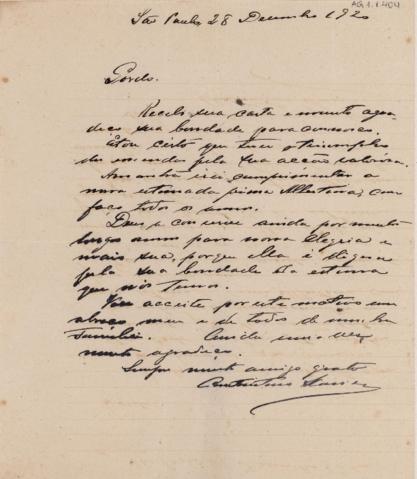 AG.1.1.404
São Paulo 28 Dezembro 1920
Gordo.
Recebi sua carta e muito agra-
deço sua bondade para comnosco.
Estou certo que
pela sua acção
Amanhã irei cumprimentar a
nossa estimada prima Albertina, como
faço todos os annos.
Deus a conserve ainda por muitos
longos annos para nossa alegria e
mais sua, porque ella é digna
pela sua bondade da estima
que nós temos.
acceite por este motivo um
abraço meu e de todos de minha
familia. Ainda uma vez
muito agradeço.
Sempre muito amigo grato